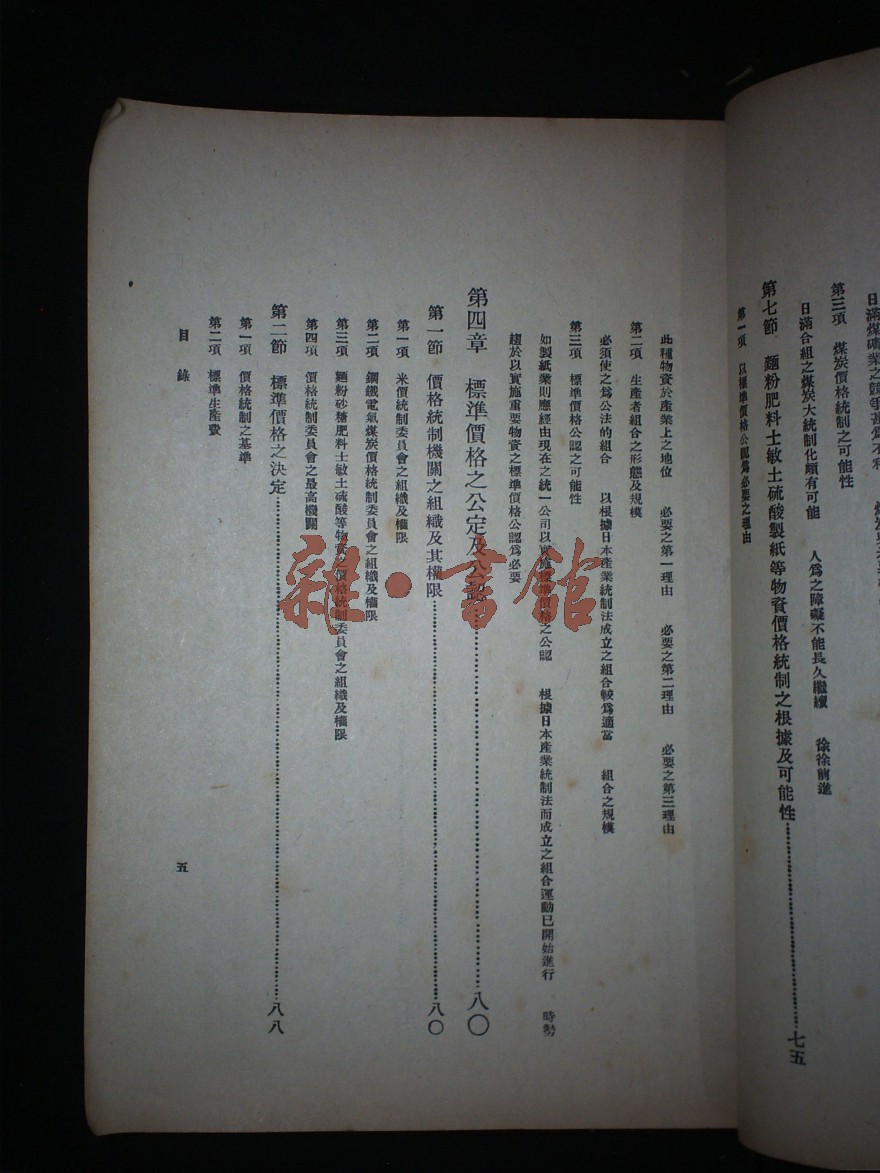 第三項 煤炭價格統制之可能性
日滿合組之煤炭大統制化頗有可能 人爲之障礙不能長久繼續 徐徐前進
第七節 麵粉肥料士敏土硫酸製紙等物資價格統制之根據及可能性 七五
第一項 以標準價格公認爲必要之理由
此種物資於產業上之地位 必要之第一理由 必要之第二理由 必要之第三理由
第二項 生產者組合之形態及規模
必須使之爲公法的組合 以根據日本產業統制法成立之組合較爲適當 組合之規模
第三項 標準價格公認之可能性
如製紙業則應經由現在之統一公司以實施標準價格之公認 根據日本產業統制法而成立之組合運動已開始進行 時勢
趨於以實施重要物資之標準價格公認爲必要
第四章 標準價格之公定及公認 八〇
第一節 價格統制機關之組織及其權限 八〇
第一項 米價統制委員會之組織及權限
第二項 鋼鐵電氣煤炭價格統制委員會之組織及權限
第三項 麵粉砂糖肥料士敏土硫酸等物資之價格統制委員會之組織及權限
第四項 價格統制委員會之最高機關
第二節 標準價格之決定 八八
第一項 價格統制之基準
第二項 標準生產費
目錄 五
雜·書館